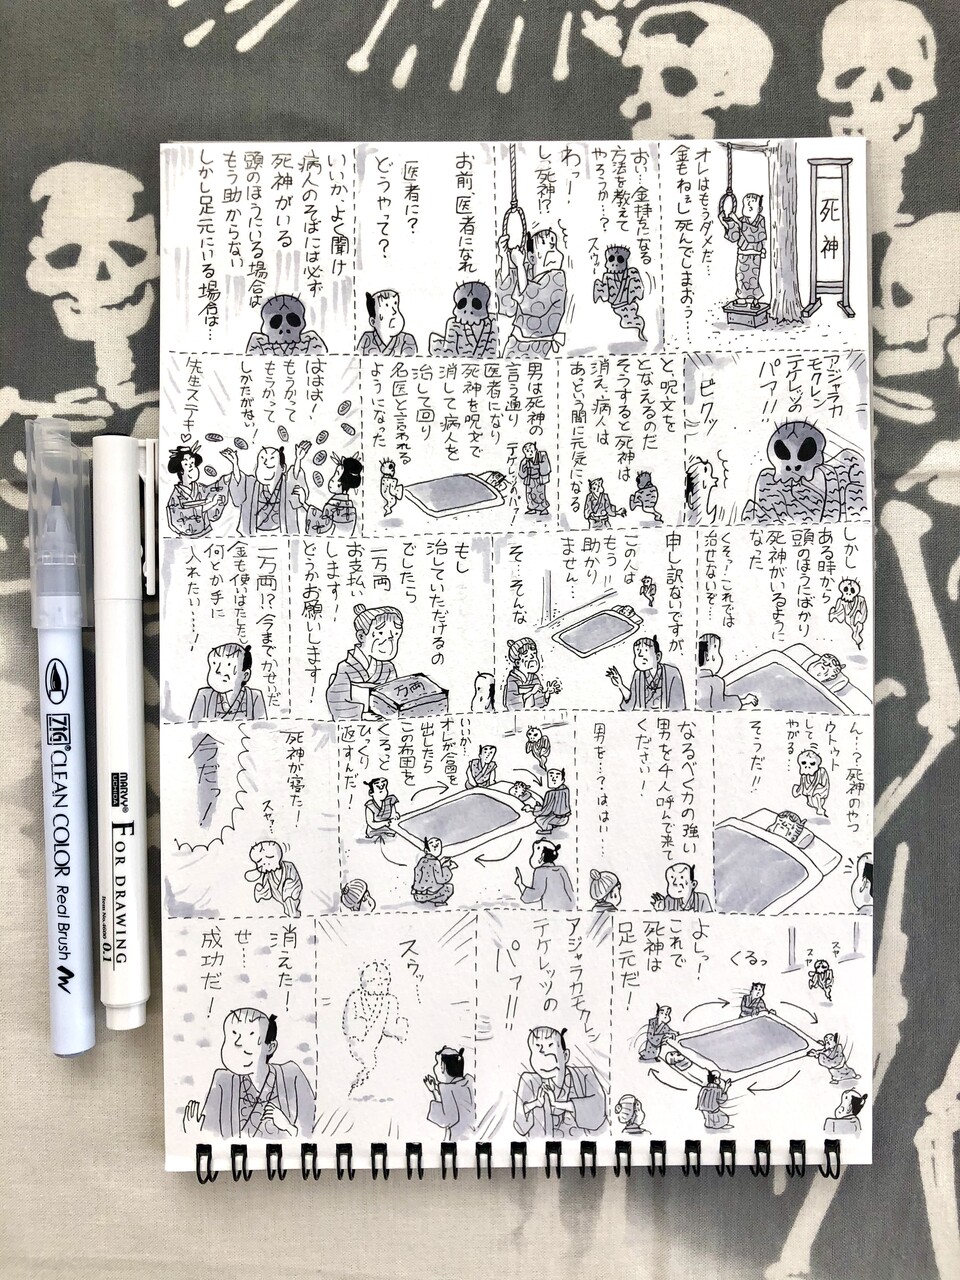 死神
オレはもうダメだ…
金もねぇし死んでしまおう…
おい…金持ちになる
方法を教えて
やろうか…?
スゥゥ…
わっ!
し、死神!?
お前、医者になれ
医者に?
どうやって?
いいか、よく聞け
病人のそばには必ず
死神がいる
頭のほうにいる場合は
もう助からない
しかし足元にいる場合は…
アジャラカ
モクレン
テケレッツの
パァ!!
ビクッ
と、呪文を
となえるのだ
そうすると死神は
消え、病人は
あっという間に元気になる
男は死神の
言う通り
医者になり
死神を呪文で
消して病人を
治して回り
名医と言われる
ようになった
テケレッツのパァ!
ははは!
もうかって
もうかって
しかたがない!
先生ステキ♡
しかし
ある時から
頭のほうにばかり
死神がいるように
なった
くそっ!これでは
治せないぞ…
申し訳ないですが
この人は
もう…
助かり
ません…
そ…そんな
もし
治していただけるの
でしたら
一万両
お支払い
します!
どうかお願いします!
一万両
一万両!?今までかせいだ
金も使いはたしたし
何とか手に
入れたい…!
ん…?死神のやつ
ウトゥト
して
やがる…
そうだ!!
なるべく力の強い
男を4人呼んで来て
ください!
男を…?はい…
いいか…
オレが合図を
出したら
この布団を
くるっと
ひっくり
返すんだ!
死神が寝た!
スヤァ…
今だっ!
スヤ
スヤ
くるっ
よしっ!
これで
死神は
足元だ!
アジャラカモクレン
テケレッツの
パァ!!
スウッ…
消えた!
せ…
成功だ!
ZIG CLEAN COLOR Real Brush
MARVY
UCHIDA
FOR DRAWING
Item No.4600 0.1